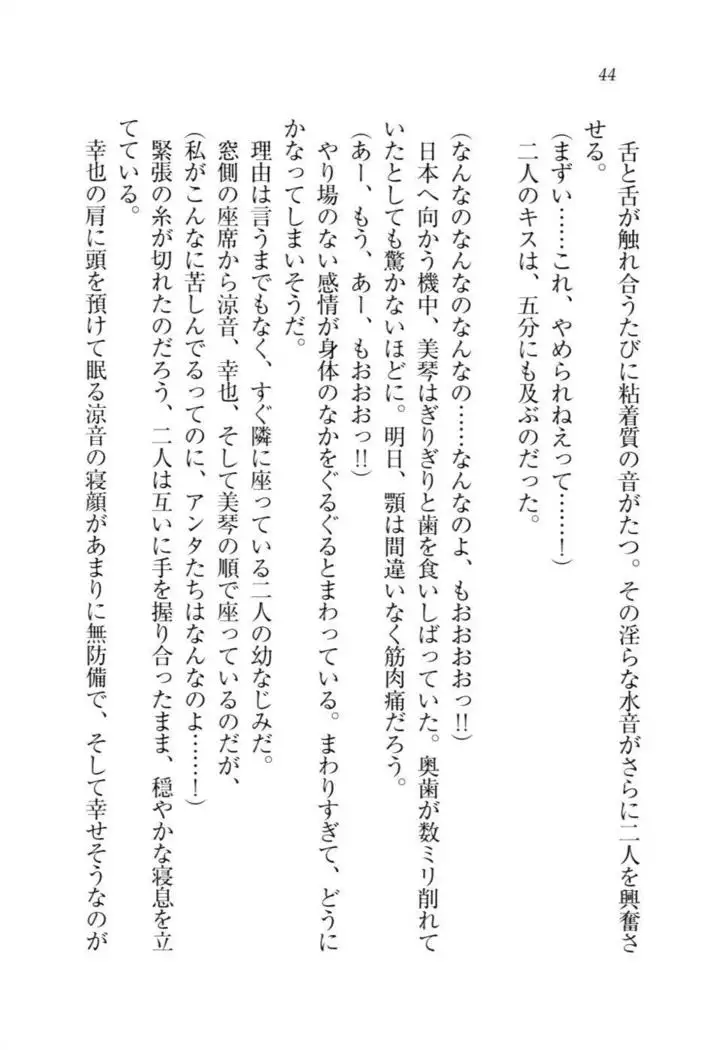 44
舌と舌が触れ合うたびに粘着質の音がたつ。その淫らな水音がさらに二人を興奮さ
せる。
(まずい……これ、やめられねえって……!)
二人のキスは、五分にも及ぶのだった。
(なんなのなんなのなんなの……なんなのよ、もおおおおっ!!)
日本へ向かう機中、美琴はぎりぎりと歯を食いしばっていた。奥歯が数ミリ削れて
いたとしても驚かないほどに。明日、顎は間違いなく筋肉痛だろう。
(あー、もう、あー、もおおおっ!!)
やり場のない感情が身体のなかをぐるぐるとまわっている。まわりすぎて、どうに
かなってしまいそうだ。
理由は言うまでもなく、すぐ隣に座っている二人の幼なじみだ。
窓側の座席から涼音、幸也、そして美琴の順で座っているのだが、
(私がこんなに苦しんでるってのに、アンタたちはなんなのよ……!)
緊張の糸が切れたのだろう、二人は互いに手を握り合ったまま、穏やかな寝息を立
てている。
幸也の肩に頭を預けて眠る涼音の寝顔があまりに無防備で、そして幸せそうなのが